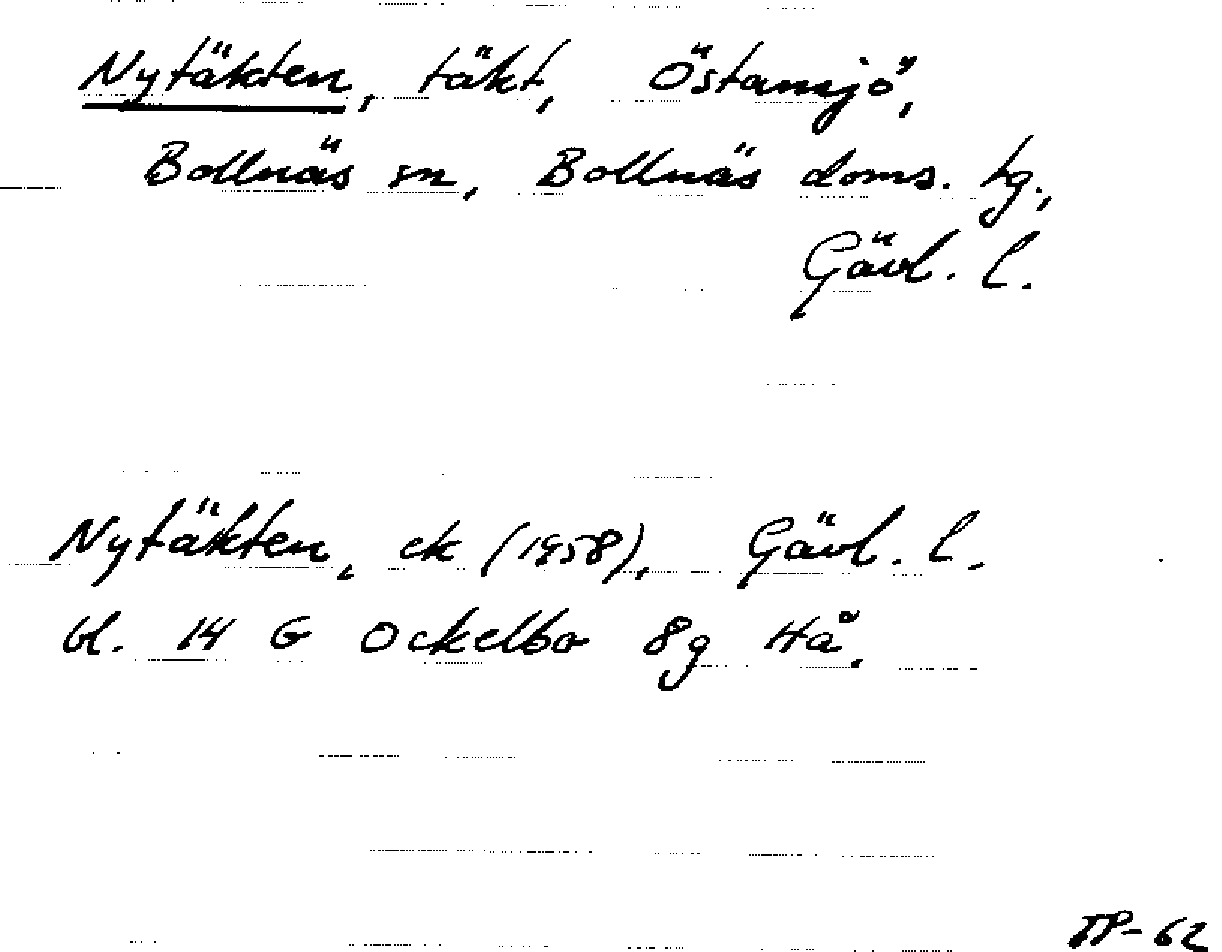 Nytäkten, täkt, Östansjö,
Bollnäs sn, Bollnäs doms. hg.,
Gävl. l.
Nytäkten, ek (1958), Gävl. l.
bl. 14 G Ockelbo 8g Hå.
TP-62